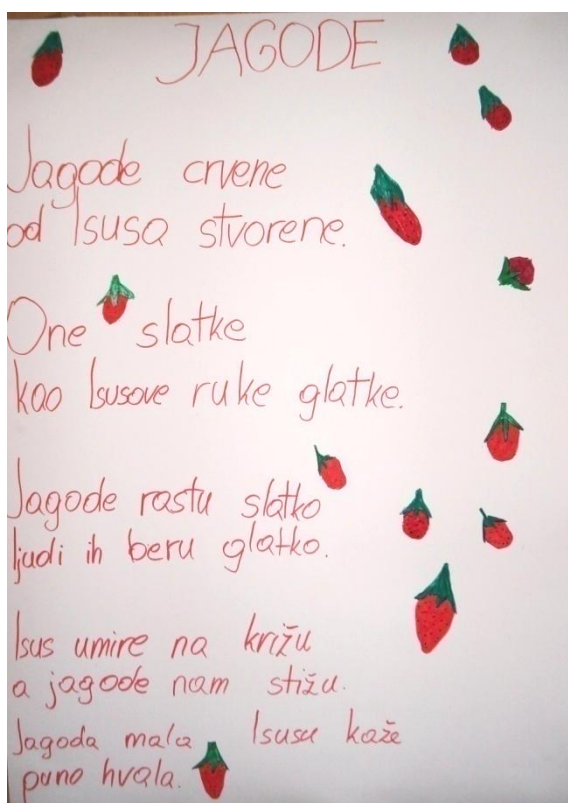 JAGODE
Jagode crvene
od Isusa stvorene.
One slatke
kao Isusove ruke glatke.
Jagode rastu slatko
ljudi ih beru glatko.
Isus umire na križu
a jagode nam stižu.
Jagoda mala Isusu kaže
puno hvala.